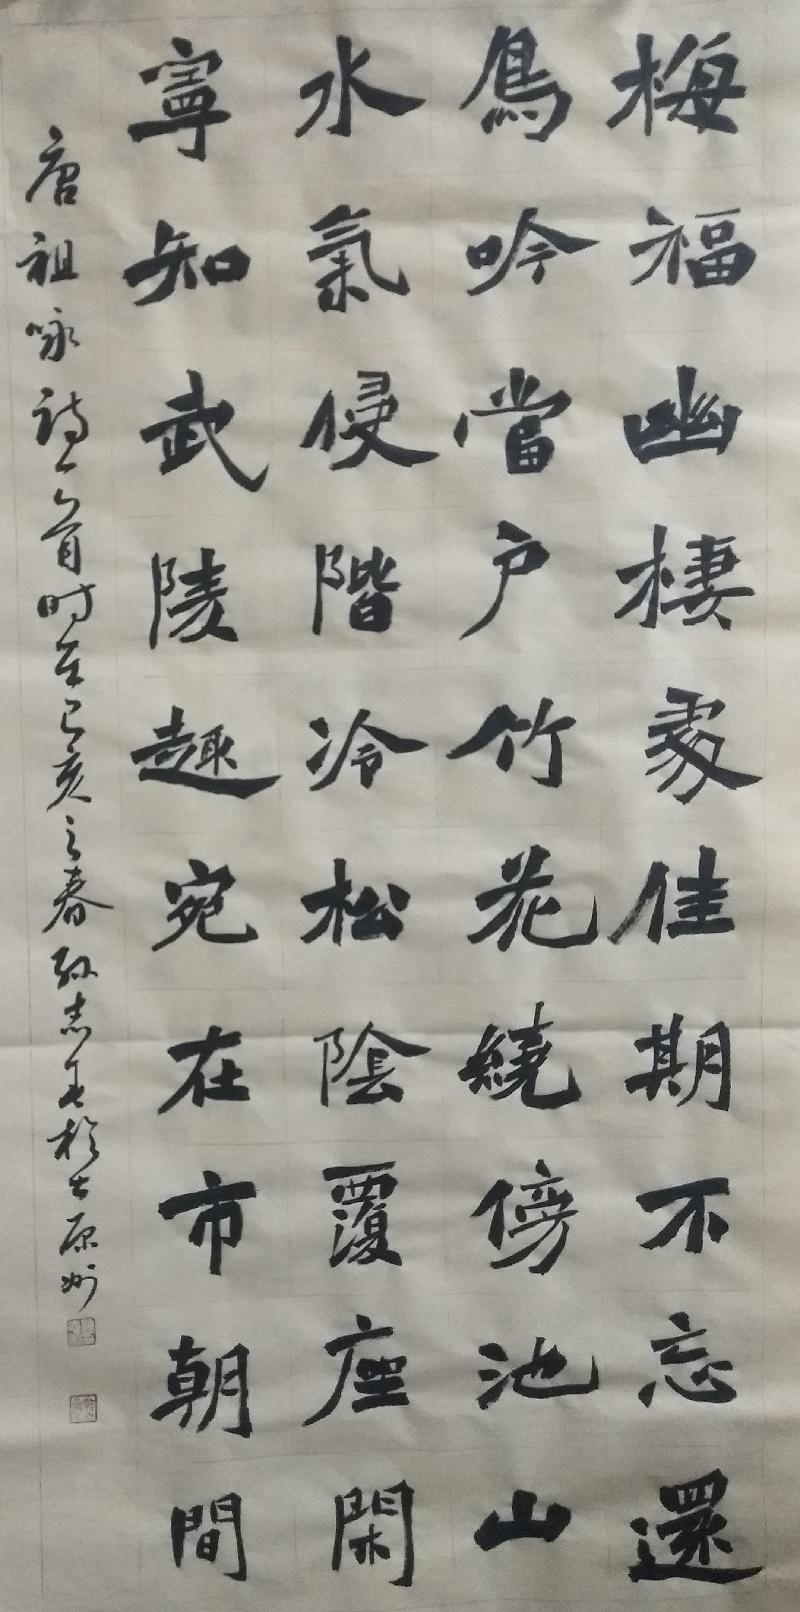 梅福幽棲處佳期不忘還
鳥吟當户竹花繞傍池山
水氣侵階冷松陰覆座閑
寧知武陵趣宛在市朝間
唐祖咏詩一首时在己亥之春孙志 於古原州